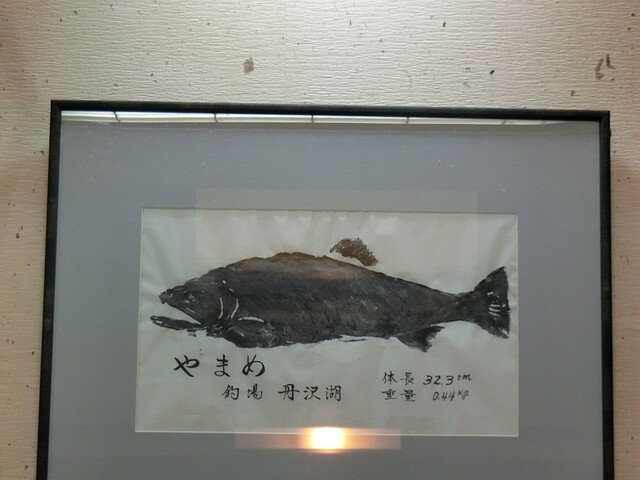 やまめ
釣場 丹沢湖
体長 32.3cm
重量 0.44kg